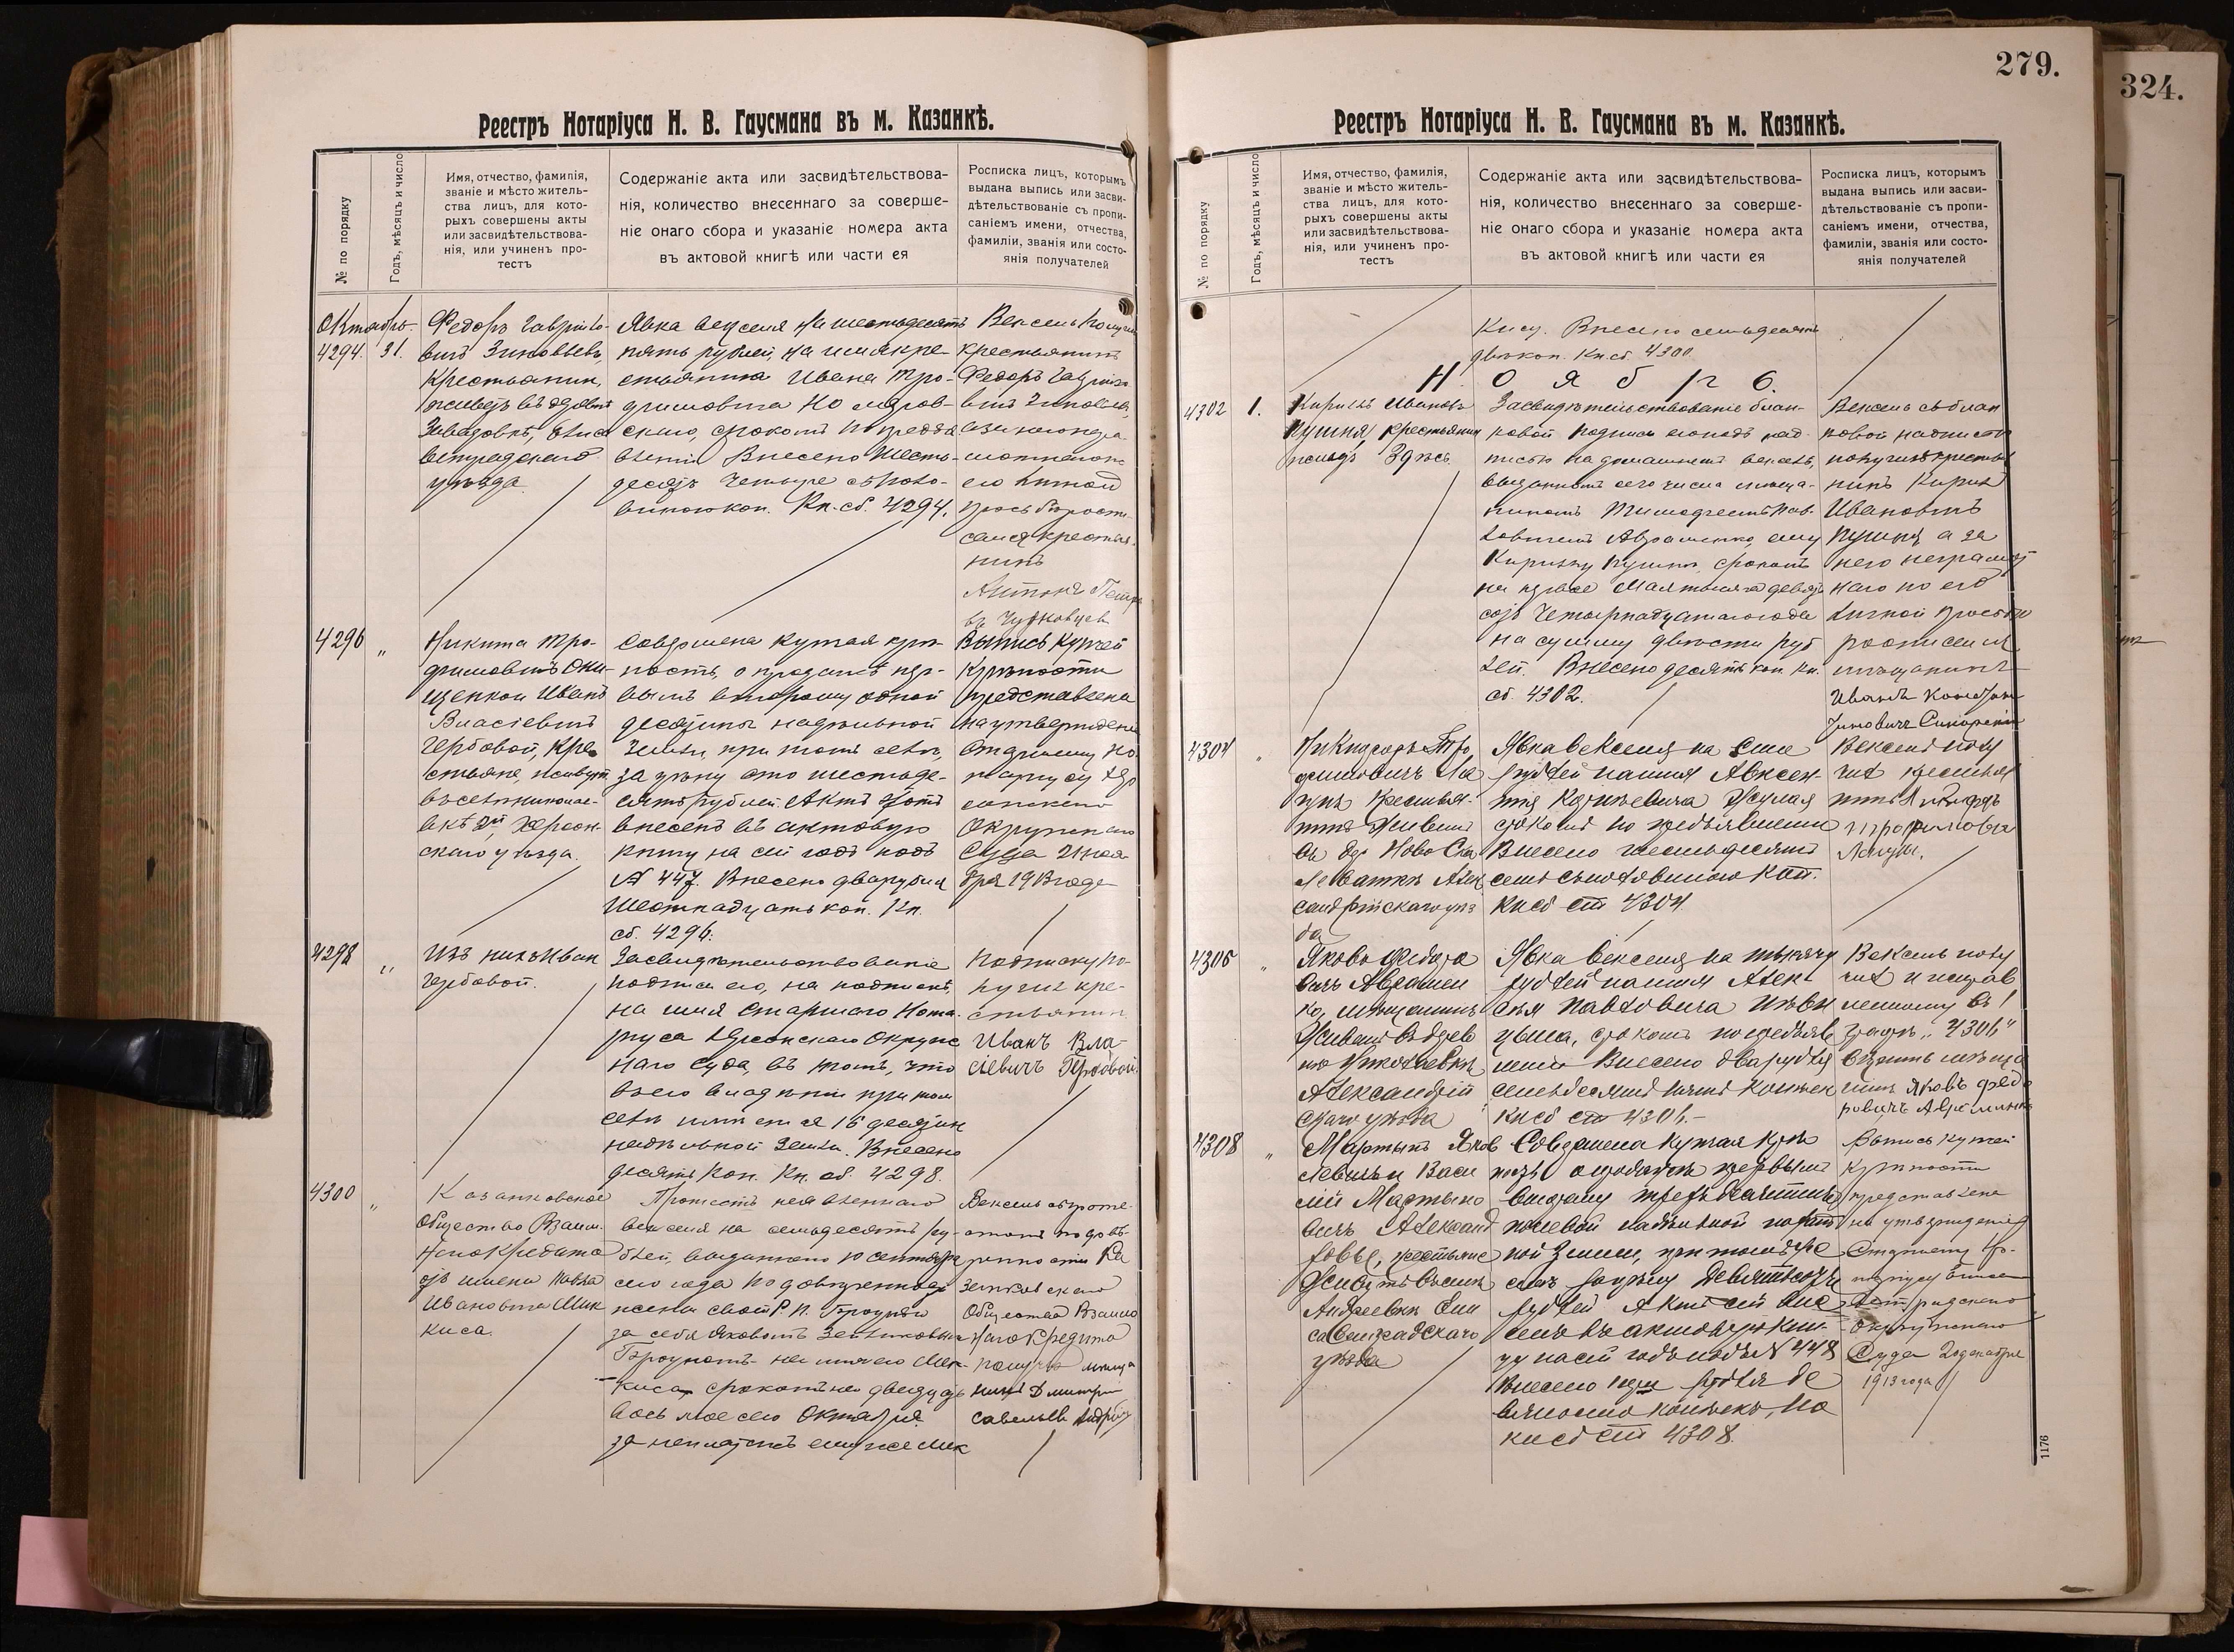 279.
324.
Реестръ Нотаріуса Н. В. Гаусмана въ м. Казанкѣ.
№ по порядку
Годъ, мѣсяцъ и число
Имя, отчество, фамилія,
званіе и мѣсто житель-
ства лицъ, для кото-
рыхъ совершены акты
или засвидѣтельствова-
нія, или учиненъ про-
тестъ
Содержаніе акта или засвидѣтельствова-
нія, количество внесеннаго за соверше-
ніе онаго сбора и указаніе номера акта
въ актовой книгѣ или части ея
Росписка лицъ, которымъ
выдана выпись или засви-
дѣтельствованіе съ пропи-
саніемъ имени, отчества,
фамиліи, званія или состо-
янія получателей
Октябрь
4294. 31.
Федоръ Гаврило-
вичъ Зиновьевъ,
Крестьянин,
живетъ въ
уѣзда.
Явка векселя на шестьдесятъ
пять рублей, на имя кре-
стьянина Ивана Тро-
фимовича
скаго, срокомъ по предъя
вленіи Внесено шесть-
десятъ четыре съ поло-
виною коп. Кн. сб. 4294.
Вексель получи
крестьянинъ
Федоръ Гаврило
вичъ Зиновьевъ,
а за неграмо
его личной
просьбѣ роспи-
сался крестья-
нинъ
Антонъ Петро
4296 „
Никита Тро-
фимовичъ Они-
щенко и Иванъ
Власіевичъ
Гербовой, кре
стьяне, живутъ
въ селѣ Николае-
вкѣ 2й, Херсон-
скаго уѣзда.
Совершена купчая крѣ-
пость, о продажѣ пер-
вымъ второму одной
десятины надѣльной
земли, при томъ селѣ,
за цѣну сто шестьде-
сятъ рублей. Актъ этотъ
внесенъ въ актовую
книгу на сей годъ подъ
№ 447. Внесено два рубля
шестнадцать коп. Кн.
сб. 4296.
Выпись купчей
крѣпости
представлена
на утвержденіе
Старшему Но-
таріусу Хер
сонскаго
Окружнаго
Суда 2 ноя-
бря 1913 года
4298 „
Изъ нихъ Иван
Гербовой.
Засвидѣтельствованіе
подписи его, на подпискѣ,
на имя Старшаго Нота-
ріуса Херсонскаго Окруж
наго Суда, въ томъ, что
въ его владѣніи при том
селѣ имѣется 16 десятин
надѣльной земли. Внесено
десять коп. Кн. сб. 4298.
Подписку по-
лучилъ кре-
стьянин
Иванъ Вла-
сіевичъ Гербовой.
4300 „
Казанковское
Общество Взаим-
наго Кредита
отъ имени Павла
Ивановича Мик
киса.
Протестъ неявленнаго
векселя на семьдесятъ ру-
блей, выданнаго 10 сентября
сего года по довѣренности
жены своей Р. П.
за себя Яковомъ
на имя его Мик-
киса срокомъ на двадцать
восьмое сего Октября
за неплатежъ ему же Мик
Вексель съ проте-
стомъ по довѣ-
ренности Ка
занковскаго
Общества Взаимо
наго Кредита
получилъ мѣща
нинъ Дмитрій
Савельевъ
Реестръ Нотаріуса Н. В. Гаусмана въ м. Казанкѣ.
№ по порядку
Годъ, мѣсяцъ и число
Имя, отчество, фамилія,
званіе и мѣсто житель-
ства лицъ, для кото-
рыхъ совершены акты
или засвидѣтельствова-
нія, или учиненъ про-
тестъ
Содержаніе акта или засвидѣтельствова-
нія, количество внесеннаго за соверше-
ніе онаго сбора и указаніе номера акта
въ актовой книгѣ или части ея
Росписка лицъ, которымъ
выдана выпись или засви-
дѣтельствованіе съ пропи-
саніемъ имени, отчества,
фамиліи, званія или состо-
янія получателей
кису. Внесено семьдесятъ
двѣ коп. Кн. сб. 4300.
Н о я б р ь.
4302 1.
Кирилъ Ивановъ
Пушня, крестьянин
живетъ Здѣсь.
Засвидѣтельствованіе блан-
ковой подписи его подъ над-
писью на домашнемъ векселѣ,
выданномъ сего числа мѣща-
ниномъ Тимофеемъ Пав-
ловичемъ Авраменко ему
Кирилу Пушнѣ, срокомъ
на первое Мая тысяча девять
сотъ четырнадцатаго года
на сумму двѣсти руб
лей. Внесено десять коп. Кн.
сб. 4302.
Вексель съ блан
ковой надписью
получилъ крестья
нинъ Кирил
Ивановичъ
Пушня, а за
него неграмот
наго по его
личной просьбѣ
росписался
мѣщанинъ
Иванъ
4304 „
Никифоръ Тро
фимовичъ Ла
пунъ крестья-
нинъ живетъ
въ дер. Ново Ска
леваткѣ Алек
сандрійскаго уѣз
да
Явка векселя на сто
рублей на имя Авксен
тія
срокомъ по предъявленіи
Внесено шестьдесятъ
семь съ половиною коп.
Кн сб ст 4304.
Вексель полу
чилъ крестья
нинъ Никифоръ
Трофимовичъ
Лапунъ.
4306 „
Яковъ Федоро
вичъ Аврамен
ко, мѣщанинъ
живетъ въ дерев
нѣ Николаевкѣ
Александрій
скаго уѣзда
Явка векселя на тысячу
рублей на имя Алек
сѣя Павловича
срокомъ по предъявле
ніи Внесено два рубля
семьдесятъ пять копѣек
Кн сб ст 4306.-
Вексель полу
чилъ и исправ
ленному въ 1
графѣ „4306"
вѣрить мѣща
нинъ Яковъ Федо
ровичъ Авраменко
4308 „
Мартынъ Яков
левичъ и Васи
лій Мартыно
вичъ Александ
ровы, крестьяне
живутъ въ селѣ
Андреевкѣ Ели
саветградскаго
уѣзда
Совершена купчая крѣ
пость о продажѣ первымъ
второму трехъ десятинъ
полевой надѣльной
ной земли, при томъ же
селѣ за цѣну девятьсотъ
рублей Актъ сей вне
сенъ въ актовую кни-
гу на сей годъ подъ № 448
Внесено три рубля де
вяносто копѣекъ, по
кн сб ст 4308.
Выпись купчей
крѣпости
представлена
на утвержденіе
Старшему Но-
таріусу Елиса
ветградскаго
Окружнаго
Суда 2 декабря
1913 года
1176